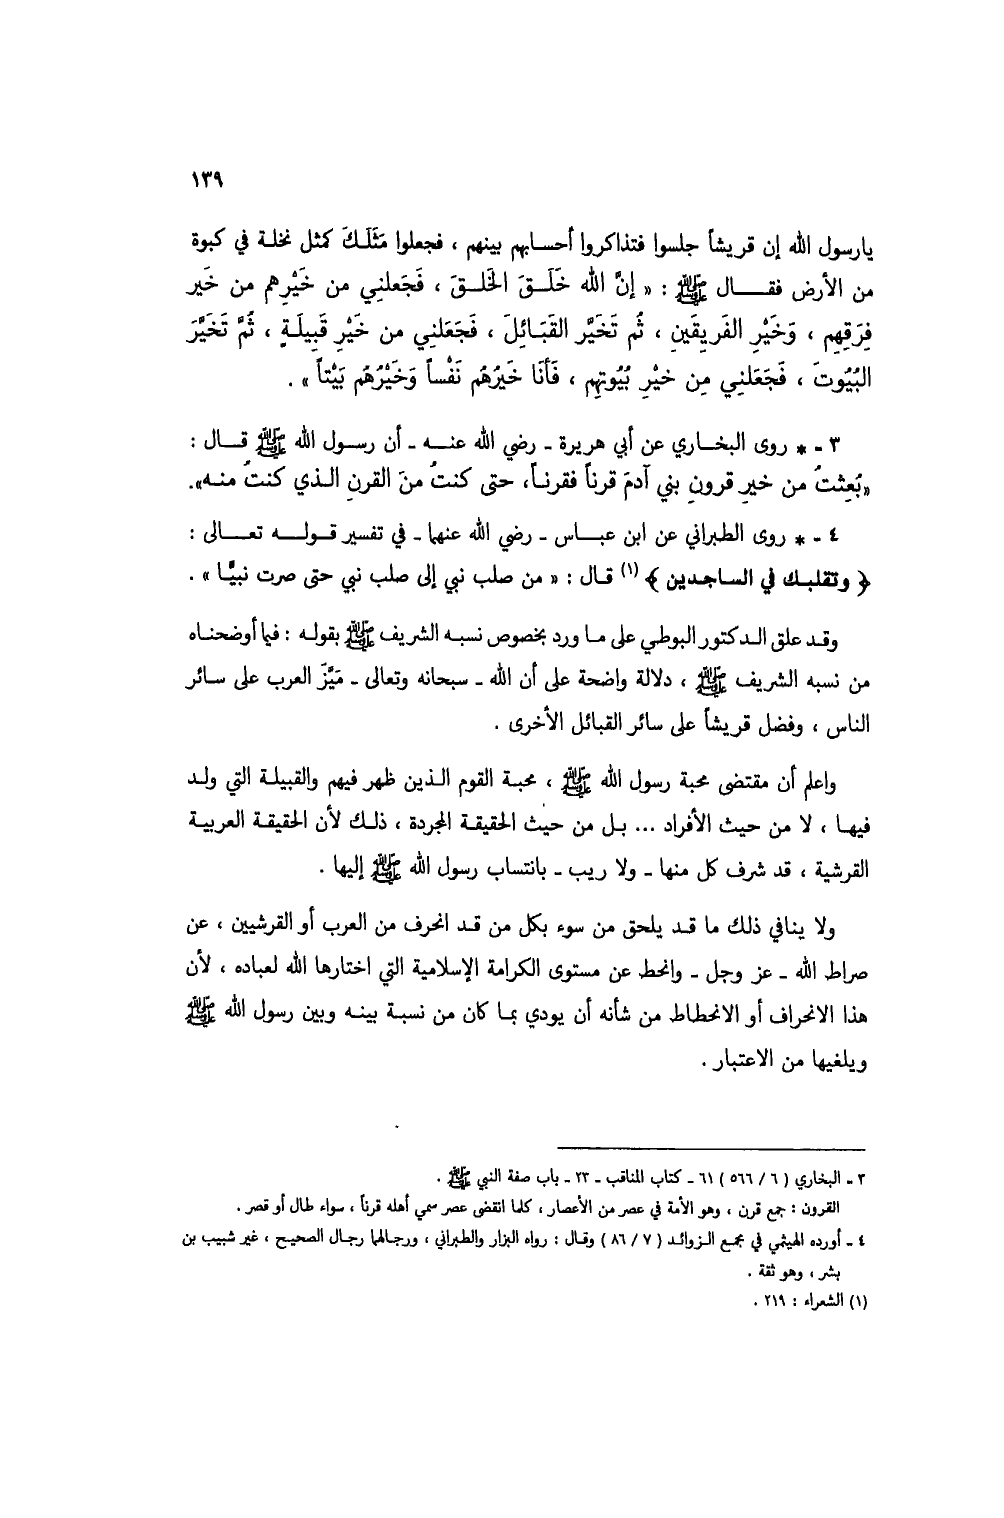 ١٣٩
يارسول الله إن قريشاً جلسوا فتذاكروا أحسابهم بينهم ، فجعلوا مَثَلَكَ كمثل نخلة في كبوة
من الأرض فقال ﷺ : « إنَّ الله خَلَقَ الخَلقَ ، فَجَعلنِي من خَيْرِهم من خَيرِ
فِرَقِهِم ، وَخَيْرِ الفَرِيقَينِ ، ثُم تَخَيَّر القَبَائِلَ ، فَجَعَلنِي من خَيْرِ قَبِيلَةٍ ، ثُمَّ تَخَيَّرَ
البُيُوتَ ، فَجَعَلنِي مِن خيْرِ بُيُوتِهِم ، فَأَنَا خَيرُهُم نَفْساً وَخَيْرُهُم بَيْتاً » .
٣ - * روى البخاري عن أبي هريرة - رضي الله عنه - أن رسول الله ﷺ قال :
«بُعِثتُ من خيرِ قرونِ بني آدمَ قرناً فقرناً، حتى كنتُ منَ القرنِ الذي كنتُ منه».
٤ - * روى الطبراني عن ابن عباس - رضي الله عنهما - في تفسير قوله تعالى :
﴿ وتقلبك في الساجدين ﴾ (١) قال : « من صلب نبي إلى صلب نبي حتى صرت نبيًّا » .
وقد علق الدكتور البوطي على ما ورد بخصوص نسبه الشريف ﷺ بقوله : فيما أوضحناه
من نسبه الشريف ﷺ ، دلالة واضحة على أن الله - سبحانه وتعالى - مَيَّزَ العرب على سائر
الناس ، وفضل قريشاً على سائر القبائل الأخرى .
واعلم أن مقتضى محبة رسول الله ﷺ ، محبة القوم الذين ظهر فيهم والقبيلة التي ولد
فيها ، لا من حيث الأفراد ... بل من حيث الحقيقة المجردة ، ذلك لأن الحقيقة العربية
القرشية ، قد شرف كل منها - ولا ريب - بانتساب رسول الله ﷺ إليها .
ولا ينافي ذلك ما قد يلحق من سوء بكل من قد انحرف من العرب أو القرشيين ، عن
صراط الله - عز وجل - وانحط عن مستوى الكرامة الإسلامية التي اختارها الله لعباده ، لأن
هذا الانحراف أو الانحطاط من شأنه أن يودي بما كان من نسبة بينه وبين رسول الله ﷺ
ويلغيها من الاعتبار .
٣ - البخاري ( ٦ / ٥٦٦ ) ٦١ - كتاب المناقب - ٢٣ - باب صفة النبي ﷺ .
القرون : جمع قرن ، وهو الأمة في عصر من الأعصار ، كلما انقضى عصر سمي أهله قرناً ، سواء طال أو قصر .
٤ - أورده الهيثمي في مجمع الزوائد ( ٧ / ٨٦ ) وقال : رواه البزار والطبراني ، ورجالهما رجال الصحيح ، غير شبيب بن
بشر ، وهو ثقة .
(١) الشعراء : ٢١٩ .